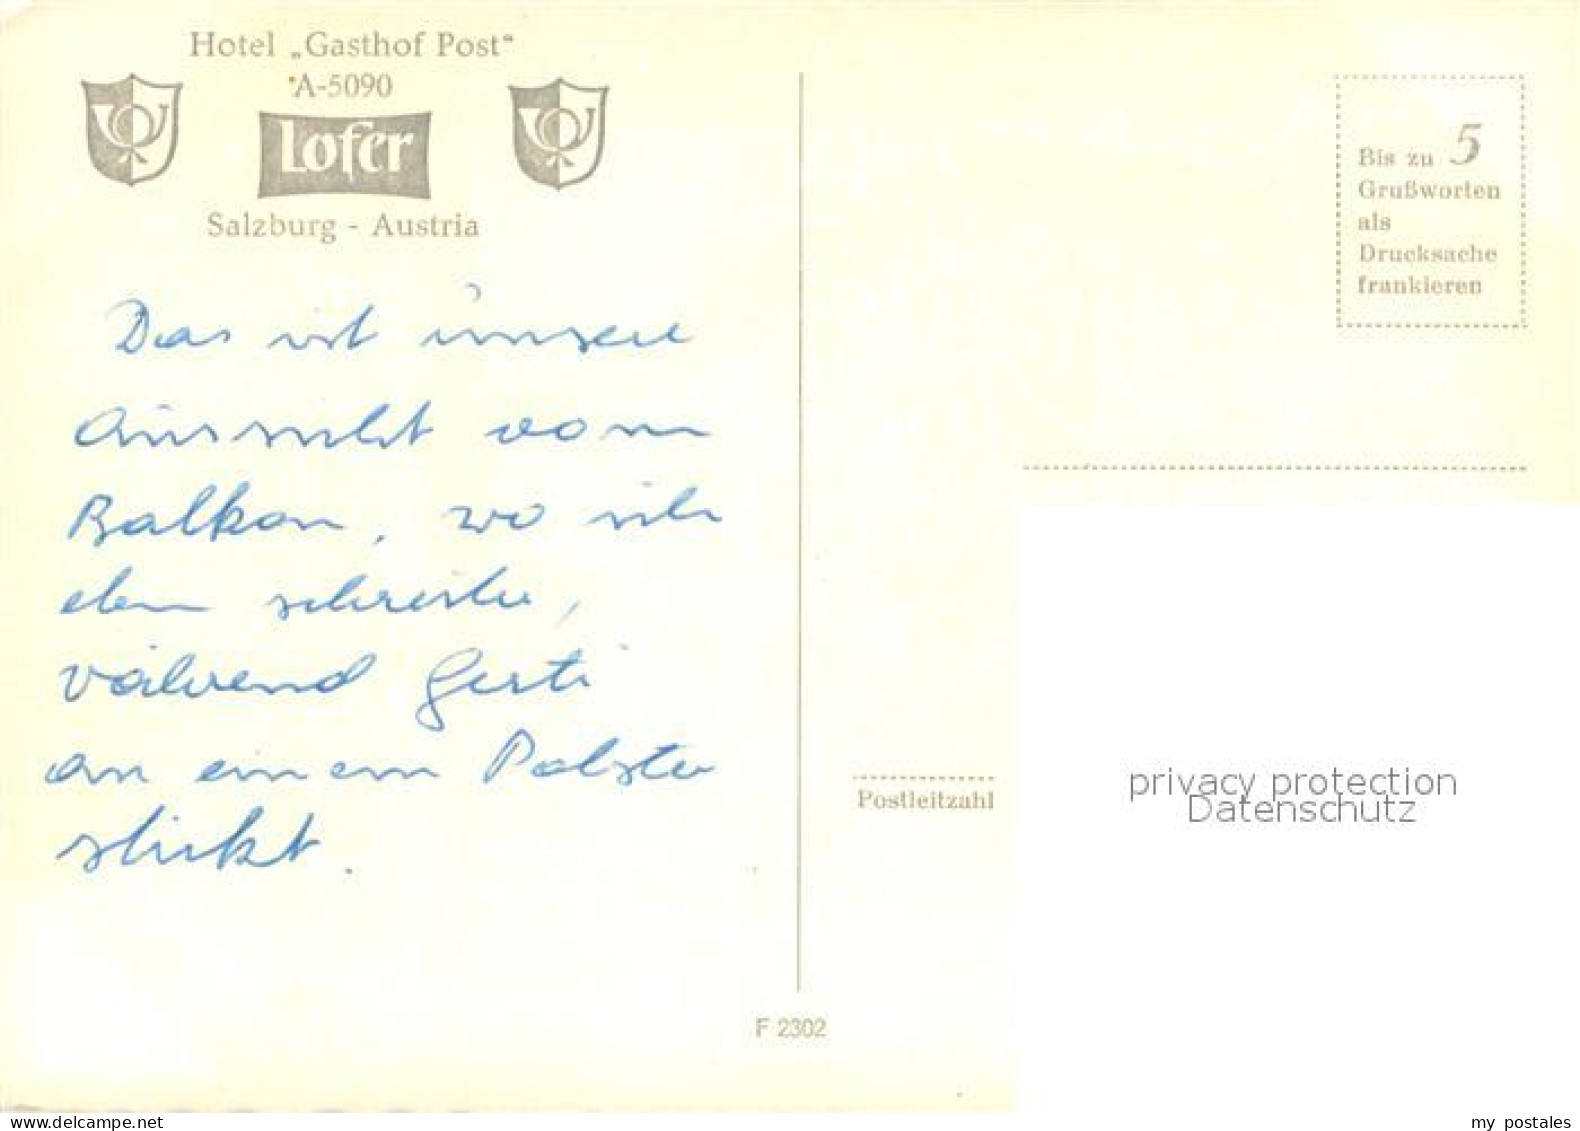 Hotel „Gasthof Post“
A-5090
Lofer
Salzburg - Austria
Bis zu 5
Grußworten
als
Drucksache
frankieren
Das ist unsere
Aussicht vom
Balkon, wo ich
eben schreibe,
während Gerti
an einem Polster
stickt.
Postleitzahl
privacy protection
Datenschutz
F 2302
my postales